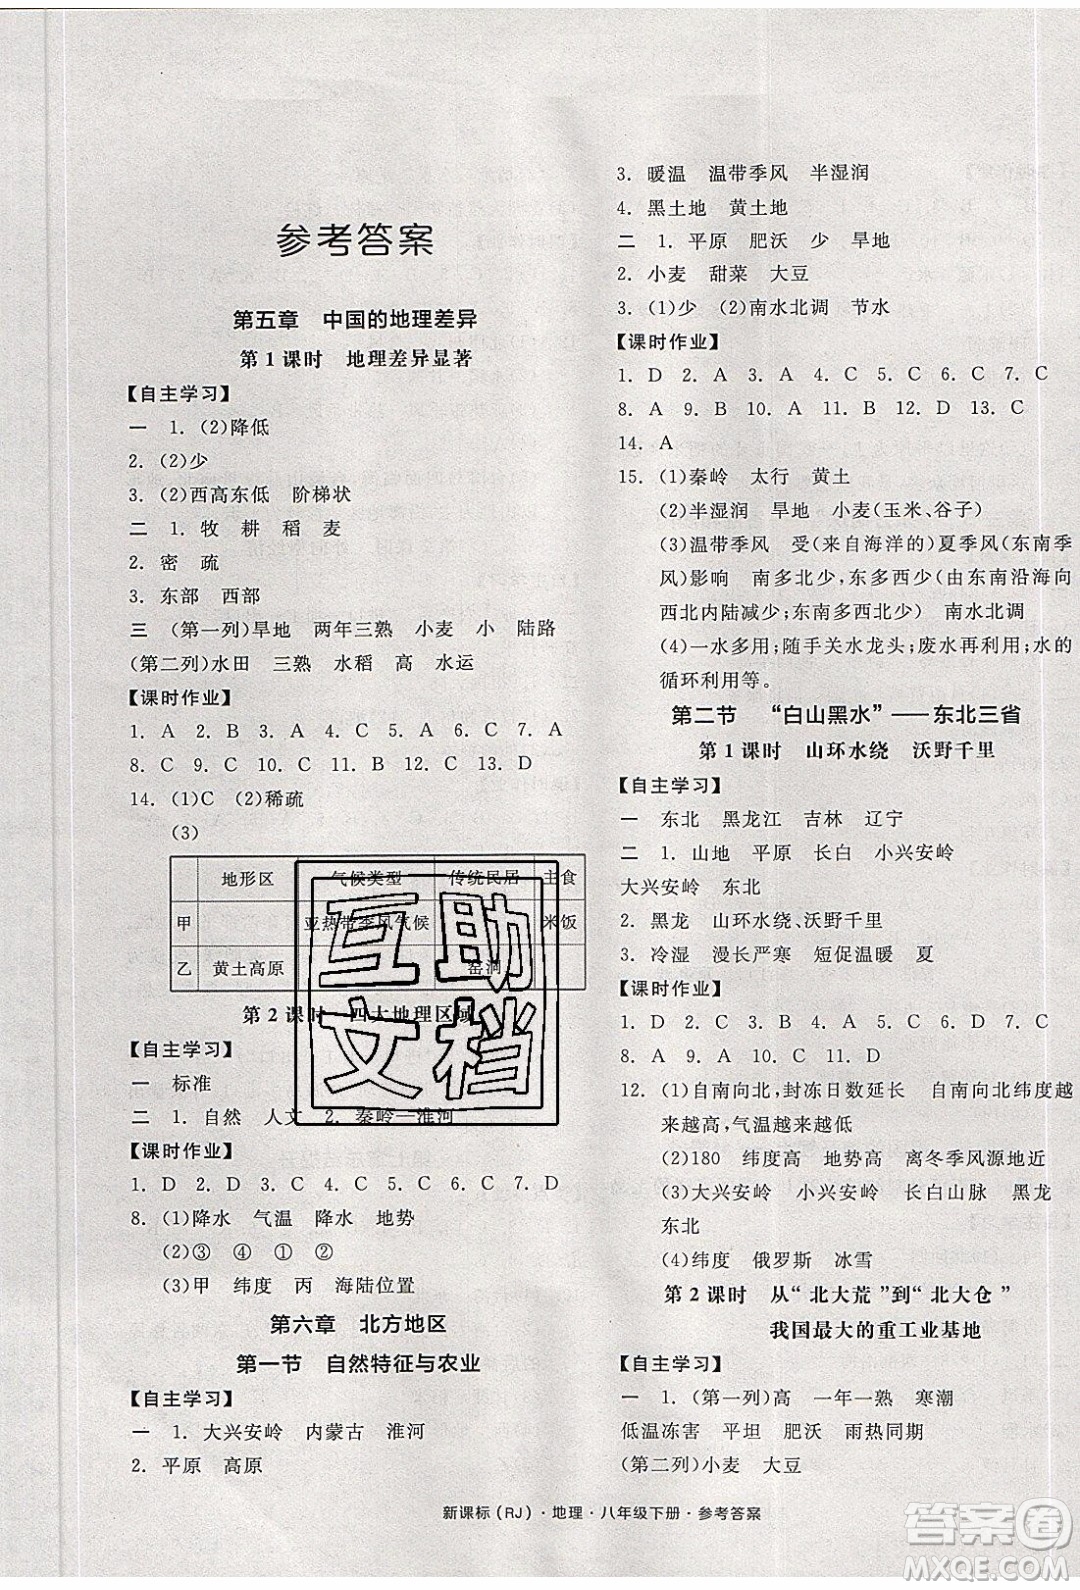 参考答案
第五章 中国的地理差异
第1课时 地理差异显著
【自主学习】
一 1. (2)降低
2. (2)少
3. (2)西高东低 阶梯状
二 1. 牧 耕 稻 麦
2. 密 疏
3. 东部 西部
三 (第一列)旱地 两年三熟 小麦 小 陆路
(第二列)水田 三熟 水稻 高 水运
【课时作业】
1. A 2. A 3. B 4. C 5. D 6. C 7. A
8. C 9. C 10. A 11. C 12. C 13. D
14. (1)C (2)稀疏
(3)
地形区 气候类型 传统民居 主食
甲 亚热带季风气候 米饭
乙 黄土高原 窑洞
第2课时 四大地理区域
【自主学习】
一 标准
二 1. 自然 人文 2. 秦岭—淮河
【课时作业】
1. D 2. A 3. D 4. C 5. C 6. C 7. D
8. (1)降水 气温 降水 地势
(2)③ ④ ① ②
(3)甲 纬度 丙 海陆位置
第六章 北方地区
第一节 自然特征与农业
【自主学习】
一 1. 大兴安岭 内蒙古 淮河
2. 平原 高原
3. 暖温 温带季风 半湿润
4. 黑土地 黄土地
二 1. 平原 肥沃 少 旱地
2. 小麦 甜菜 大豆
3. (1)少 (2)南水北调 节水
【课时作业】
1. D 2. A 3. A 4. C 5. C 6. C 7. C
8. A 9. B 10. A 11. A 12. D 13. C
14. A
15. (1)秦岭 太行 黄土
(2)半湿润 旱地 小麦(玉米、谷子)
(3)温带季风 受(来自海洋的)夏季风(东南季
风)影响 南多北少,东多西少(由东南沿海向
西北内陆减少;东南多西北少) 南水北调
(4)一水多用;随手关水龙头;废水再利用;水的
循环利用等。
第二节 “白山黑水”——东北三省
第1课时 山环水绕 沃野千里
【自主学习】
一 东北 黑龙江 吉林 辽宁
二 1. 山地 平原 长白 小兴安岭
大兴安岭 东北
2. 黑龙 山环水绕、沃野千里
3. 冷湿 漫长严寒 短促温暖 夏
【课时作业】
1. D 2. D 3. D 4. C 5. C 6. D 7. C
8. A 9. C 10. A 11. D
12. (1)自南向北,封冻日数延长 自南向北纬度越
来越高,气温越来越低
(2)180 纬度高 地势高 离冬季风源地近
(3)大兴安岭 小兴安岭 长白山脉 黑龙
东北
(4)纬度 俄罗斯 冰雪
第2课时 从“北大荒”到“北大仓”
我国最大的重工业基地
【自主学习】
一 1. (第一列)高 一年一熟 寒潮
低温冻害 平坦 肥沃 雨热同期
(第二列)小麦 大豆
新课标(RJ)·地理·八年级下册·参考答案
互助
文档
答案圈
MXQE.COM